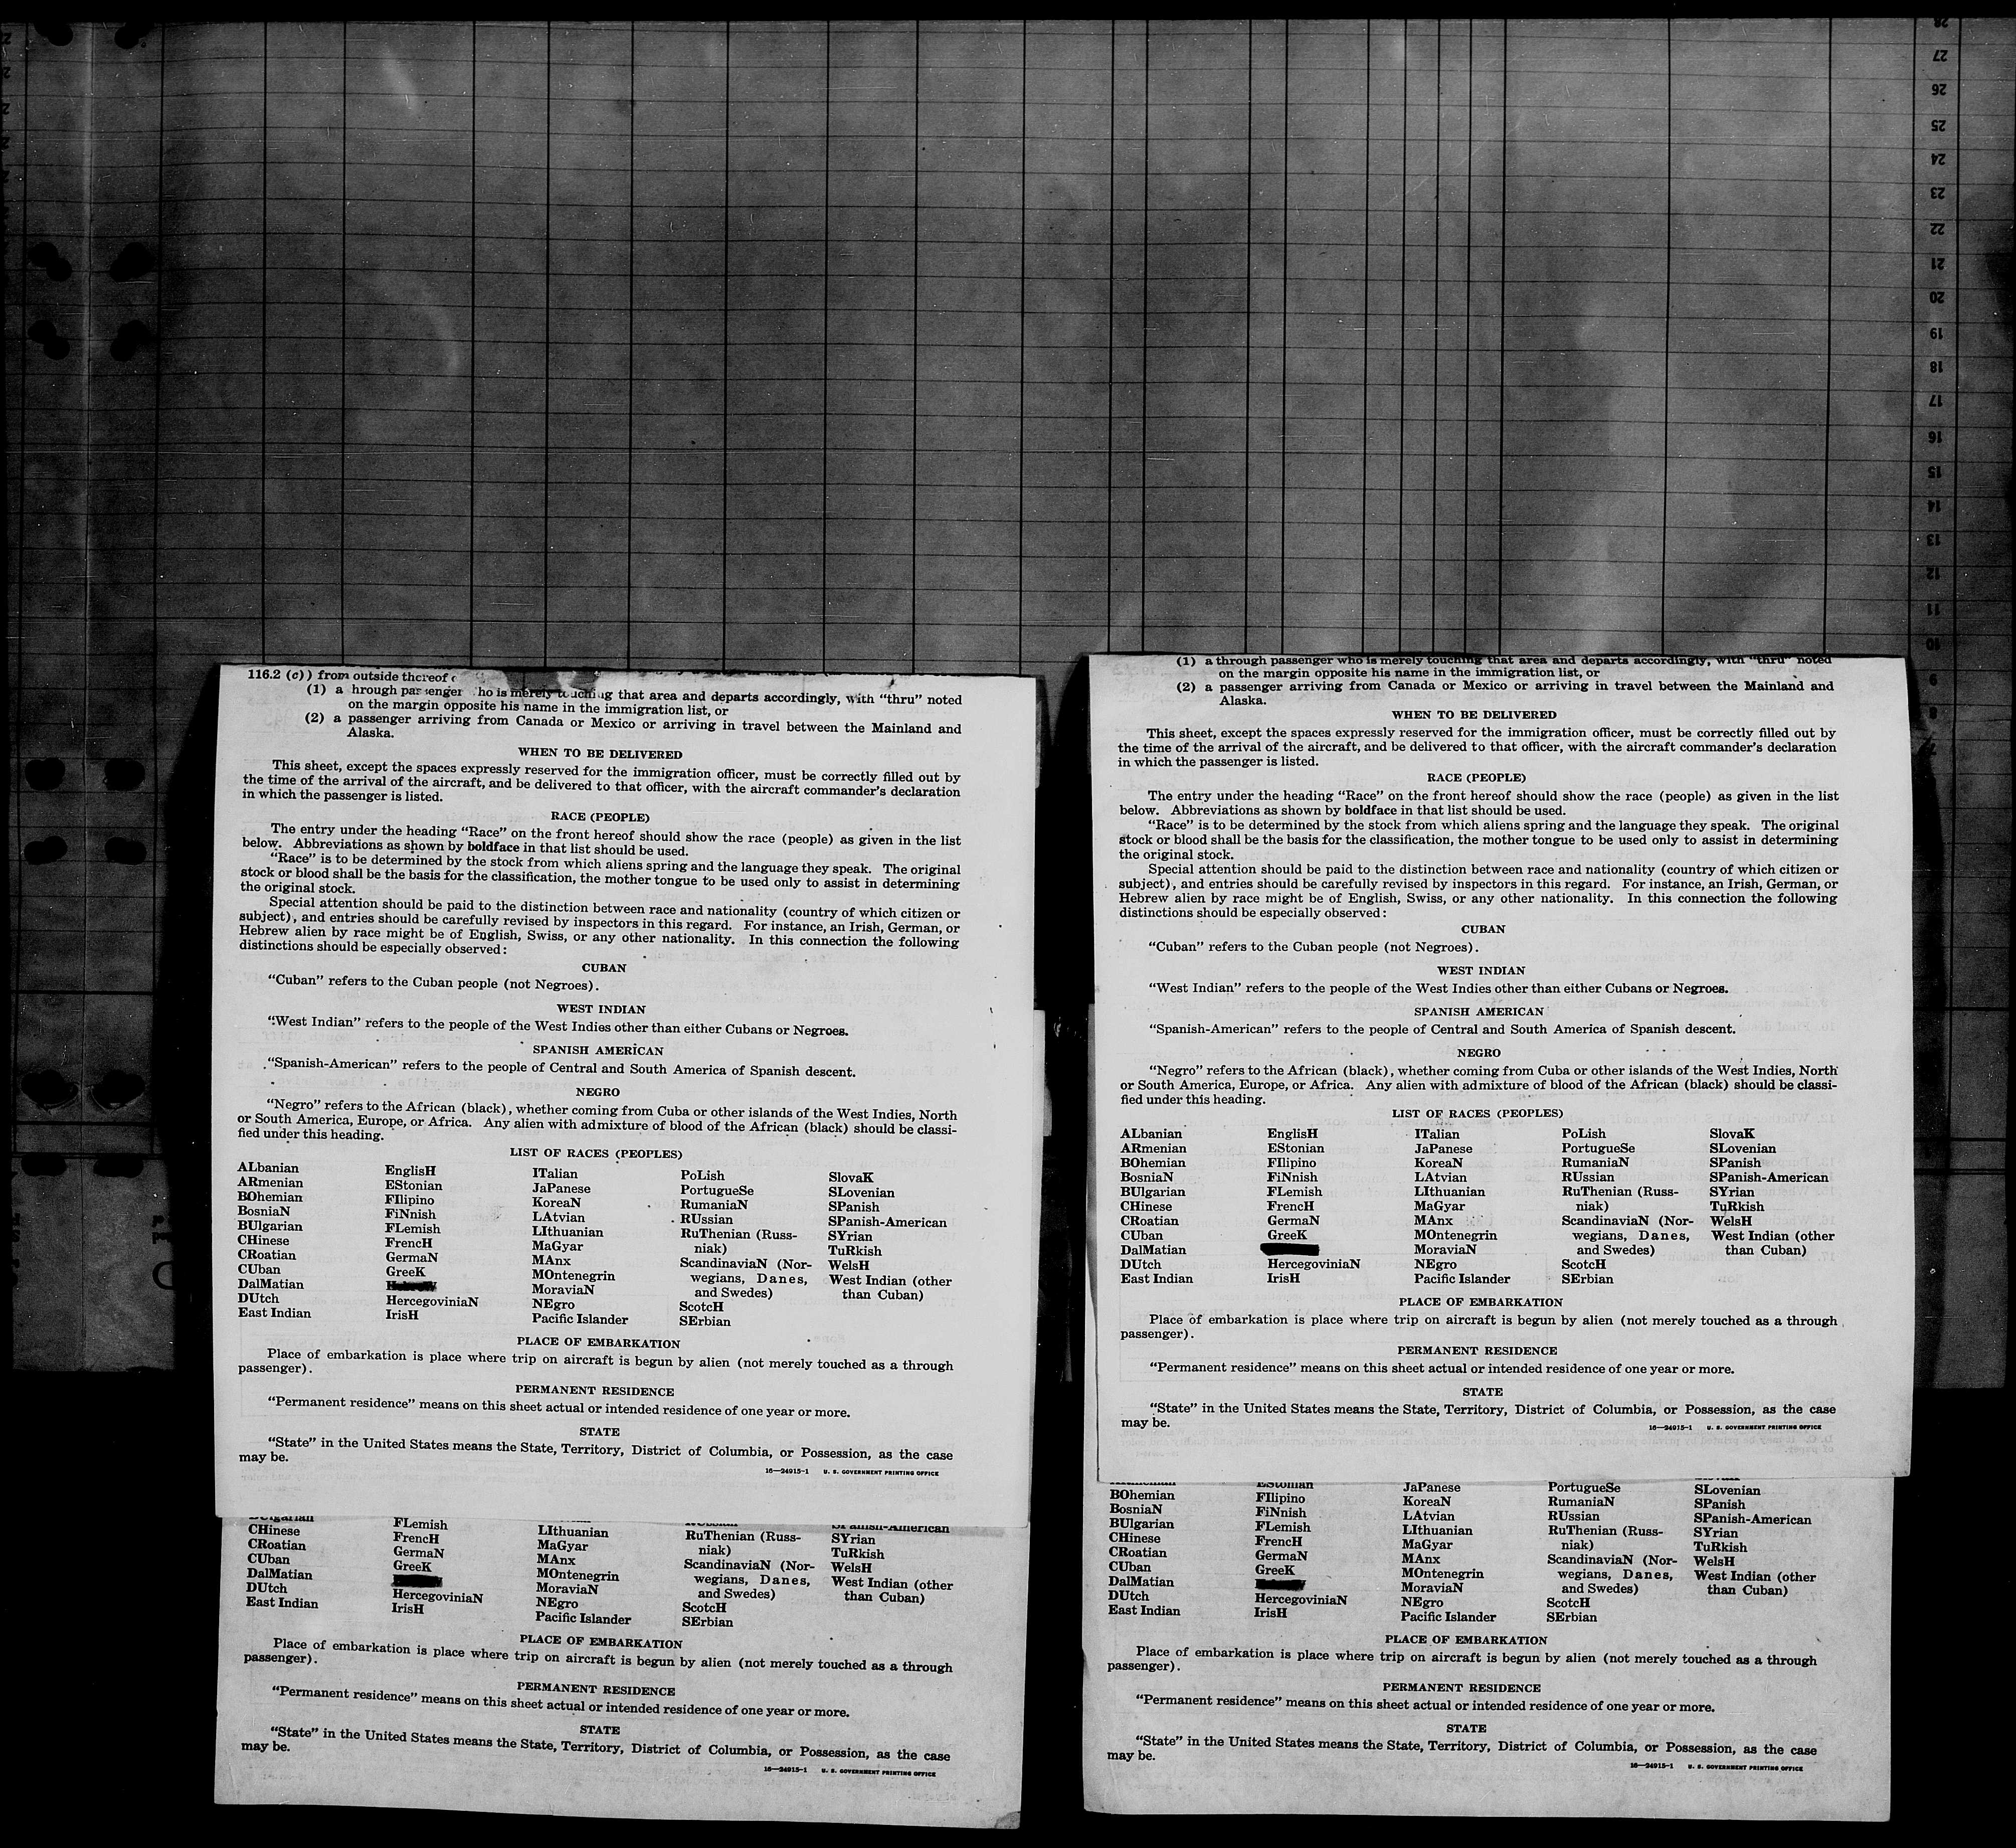 28
27
26
25
24
23
22
21
20
19
18
17
16
15
14
13
12
11
10
9
8
7
116.2 (c)) from outside thereof
(1) a hrough passenger ho is merely touching that area and departs accordingly, with "thru" noted
on the margin opposite his name in the immigration list, or
(2) a passenger arriving from Canada or Mexico or arriving in travel between the Mainland and
Alaska.
WHEN TO BE DELIVERED
This sheet, except the spaces expressly reserved for the immigration officer, must be correctly filled out by
the time of the arrival of the aircraft, and be delivered to that officer, with the aircraft commander's declaration
in which the passenger is listed.
RACE (PEOPLE)
The entry under the heading "Race" on the front hereof should show the race (people) as given in the list
below. Abbreviations as shown by boldface in that list should be used.
"Race" is to be determined by the stock from which aliens spring and the language they speak. The original
stock or blood shall be the basis for the classification, the mother tongue to be used only to assist in determining
the original stock.
Special attention should be paid to the distinction between race and nationality (country of which citizen or
subject), and entries should be carefully revised by inspectors in this regard. For instance, an Irish, German, or
Hebrew alien by race might be of English, Swiss, or any other nationality. In this connection the following
distinctions should be especially observed:
CUBAN
"Cuban" refers to the Cuban people (not Negroes).
WEST INDIAN
"West Indian" refers to the people of the West Indies other than either Cubans or Negroes.
SPANISH AMERICAN
"Spanish-American" refers to the people of Central and South America of Spanish descent.
NEGRO
"Negro" refers to the African (black), whether coming from Cuba or other islands of the West Indies, North
or South America, Europe, or Africa. Any alien with admixture of blood of the African (black) should be classi-
fied under this heading.
LIST OF RACES (PEOPLES)
ALbanian
ARmenian
BOhemian
BosniaN
BUlgarian
CHinese
CRoatian
CUban
DalMatian
DUtch
East Indian
EnglisH
EStonian
FIlipino
FiNnish
FLemish
FrencH
GermaN
GreeK
HercegoviniaN
IrisH
ITalian
JaPanese
KoreaN
LAtvian
LIthuanian
MaGyar
MAnx
MOntenegrin
MoraviaN
NEgro
Pacific Islander
PoLish
PortugueSe
RumaniaN
RUssian
RuThenian (Russ-
niak)
ScandinaviaN (Nor-
wegians, Danes,
and Swedes)
ScotcH
SErbian
SlovaK
SLovenian
SPanish
SPanish-American
SYrian
TuRkish
WelsH
West Indian (other
than Cuban)
PLACE OF EMBARKATION
Place of embarkation is place where trip on aircraft is begun by alien (not merely touched as a through
passenger).
PERMANENT RESIDENCE
"Permanent residence" means on this sheet actual or intended residence of one year or more.
STATE
"State" in the United States means the State, Territory, District of Columbia, or Possession, as the case
may be.
16—24915-1 U. S. GOVERNMENT PRINTING OFFICE
BUlgarian
CHinese
CRoatian
CUban
DalMatian
DUtch
East Indian
FLemish
FrencH
GermaN
GreeK
HercegoviniaN
IrisH
LIthuanian
MaGyar
MAnx
MOntenegrin
MoraviaN
NEgro
Pacific Islander
RUssian
RuThenian (Russ-
niak)
ScandinaviaN (Nor-
wegians, Danes,
and Swedes)
ScotcH
SErbian
SPanish-American
SYrian
TuRkish
WelsH
West Indian (other
than Cuban)
PLACE OF EMBARKATION
Place of embarkation is place where trip on aircraft is begun by alien (not merely touched as a through
passenger).
PERMANENT RESIDENCE
"Permanent residence" means on this sheet actual or intended residence of one year or more.
STATE
"State" in the United States means the State, Territory, District of Columbia, or Possession, as the case
may be.
16—24915-1 U. S. GOVERNMENT PRINTING OFFICE
(1) a through passenger who is merely touching that area and departs accordingly, with "thru" noted
on the margin opposite his name in the immigration list, or
(2) a passenger arriving from Canada or Mexico or arriving in travel between the Mainland and
Alaska.
WHEN TO BE DELIVERED
This sheet, except the spaces expressly reserved for the immigration officer, must be correctly filled out by
the time of the arrival of the aircraft, and be delivered to that officer, with the aircraft commander's declaration
in which the passenger is listed.
RACE (PEOPLE)
The entry under the heading "Race" on the front hereof should show the race (people) as given in the list
below. Abbreviations as shown by boldface in that list should be used.
"Race" is to be determined by the stock from which aliens spring and the language they speak. The original
stock or blood shall be the basis for the classification, the mother tongue to be used only to assist in determining
the original stock.
Special attention should be paid to the distinction between race and nationality (country of which citizen or
subject), and entries should be carefully revised by inspectors in this regard. For instance, an Irish, German, or
Hebrew alien by race might be of English, Swiss, or any other nationality. In this connection the following
distinctions should be especially observed:
CUBAN
"Cuban" refers to the Cuban people (not Negroes).
WEST INDIAN
"West Indian" refers to the people of the West Indies other than either Cubans or Negroes.
SPANISH AMERICAN
"Spanish-American" refers to the people of Central and South America of Spanish descent.
NEGRO
"Negro" refers to the African (black), whether coming from Cuba or other islands of the West Indies, North
or South America, Europe, or Africa. Any alien with admixture of blood of the African (black) should be classi-
fied under this heading.
LIST OF RACES (PEOPLES)
ALbanian
ARmenian
BOhemian
BosniaN
BUlgarian
CHinese
CRoatian
CUban
DalMatian
DUtch
East Indian
EnglisH
EStonian
FIlipino
FiNnish
FLemish
FrencH
GermaN
GreeK
HercegoviniaN
IrisH
ITalian
JaPanese
KoreaN
LAtvian
LIthuanian
MaGyar
MAnx
MOntenegrin
MoraviaN
NEgro
Pacific Islander
PoLish
PortugueSe
RumaniaN
RUssian
RuThenian (Russ-
niak)
ScandinaviaN (Nor-
wegians, Danes,
and Swedes)
ScotcH
SErbian
SlovaK
SLovenian
SPanish
SPanish-American
SYrian
TuRkish
WelsH
West Indian (other
than Cuban)
PLACE OF EMBARKATION
Place of embarkation is place where trip on aircraft is begun by alien (not merely touched as a through
passenger).
PERMANENT RESIDENCE
"Permanent residence" means on this sheet actual or intended residence of one year or more.
STATE
"State" in the United States means the State, Territory, District of Columbia, or Possession, as the case
may be.
16—24915-1 U. S. GOVERNMENT PRINTING OFFICE
BOhemian
BosniaN
BUlgarian
CHinese
CRoatian
CUban
DalMatian
DUtch
East Indian
EStonian
FIlipino
FiNnish
FLemish
FrencH
GermaN
GreeK
HercegoviniaN
IrisH
JaPanese
KoreaN
LAtvian
LIthuanian
MaGyar
MAnx
MOntenegrin
MoraviaN
NEgro
Pacific Islander
PortugueSe
RumaniaN
RUssian
RuThenian (Russ-
niak)
ScandinaviaN (Nor-
wegians, Danes,
and Swedes)
ScotcH
SErbian
SLovenian
SPanish
SPanish-American
SYrian
TuRkish
WelsH
West Indian (other
than Cuban)
PLACE OF EMBARKATION
Place of embarkation is place where trip on aircraft is begun by alien (not merely touched as a through
passenger).
PERMANENT RESIDENCE
"Permanent residence" means on this sheet actual or intended residence of one year or more.
STATE
"State" in the United States means the State, Territory, District of Columbia, or Possession, as the case
may be.
16—24915-1 U. S. GOVERNMENT PRINTING OFFICE